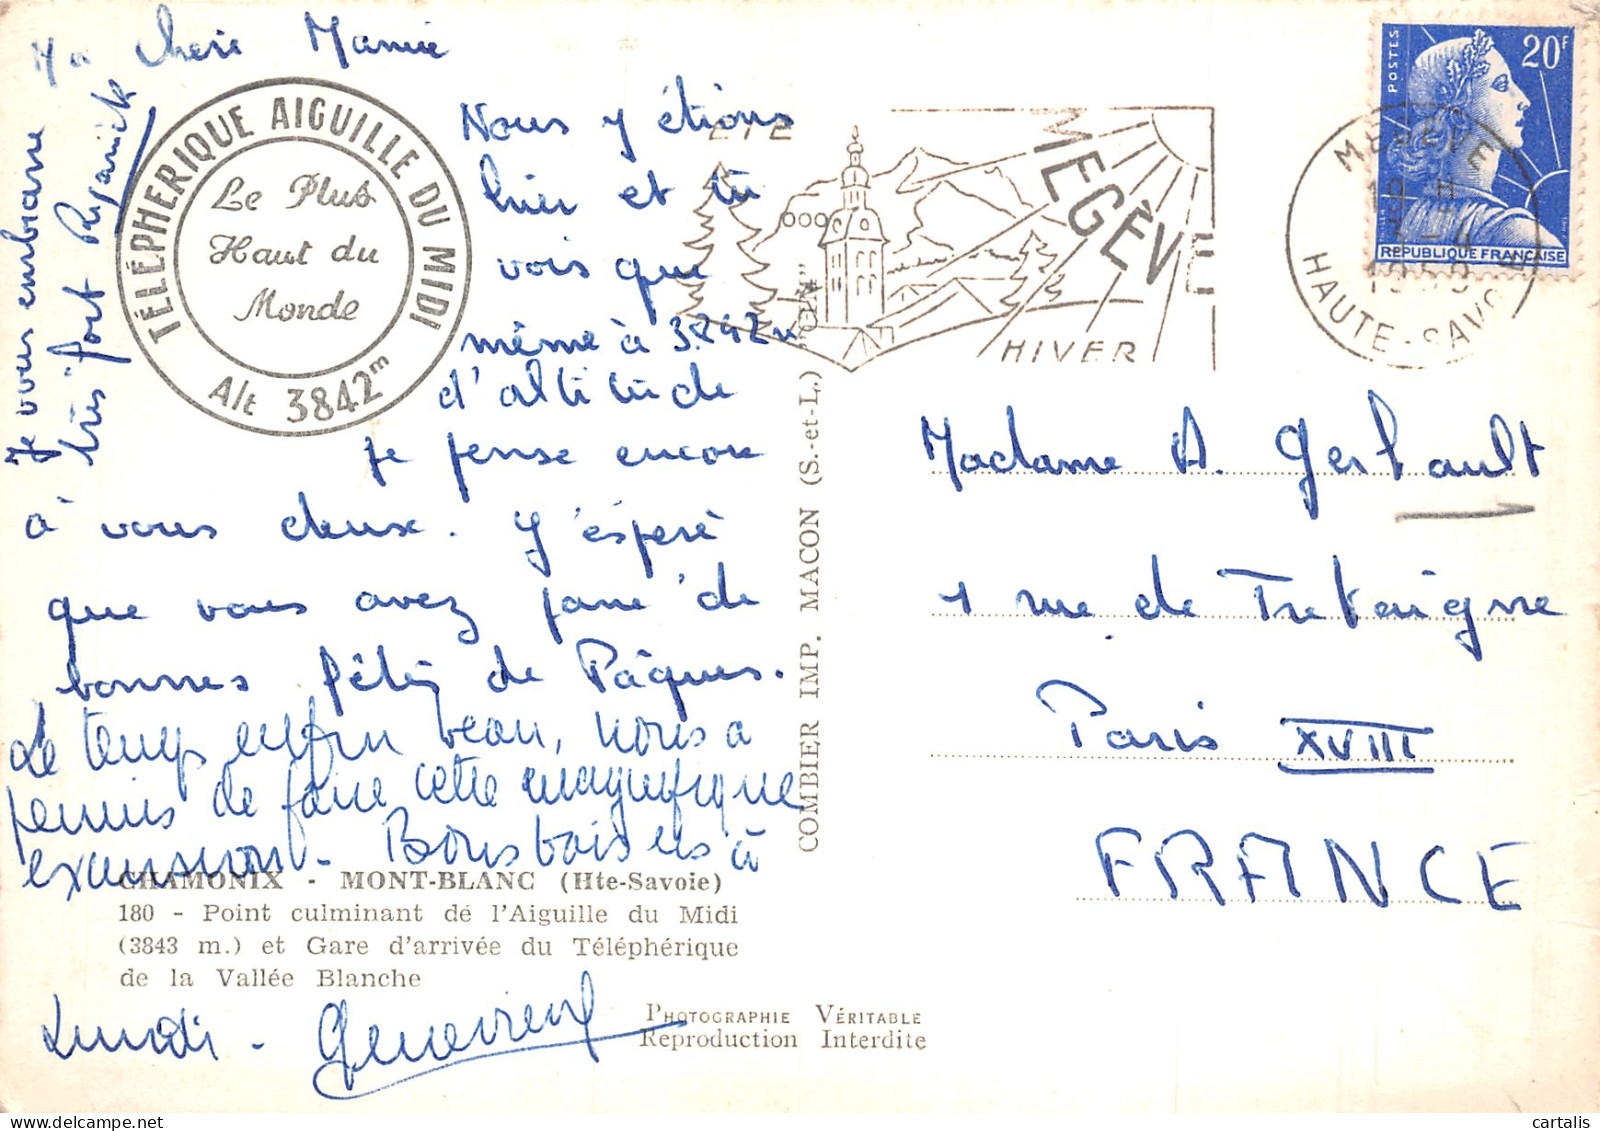 Ma chère Mamie
Nous y étions
hier et tu
vois que
même à 3.842 m
d'altitude
je pense encore
à vous deux. J'éspère
que vous avez passé de
bonnes fêtes de Pâques.
Je vous embrasse
très fort
Le temps enfin beau, nous a
permis de faire cette magnifique
excursion - Bons baisers à
Lundi - Geneviève
TÉLÉPHERIQUE AIGUILLE DU MIDI
Le Plus
Haut du
Monde
Alt 3842m
CHAMONIX - MONT-BLANC (Hte-Savoie)
180 - Point culminant de l'Aiguille du Midi
(3843 m.) et Gare d'arrivée du Téléphérique
de la Vallée Blanche
PHOTOGRAPHIE VÉRITABLE
Reproduction Interdite
COMBIER IMP. MACON (S.-et-L.) "CIM"
ETE
MEGÈVE
HIVER
POSTES
20F
REPUBLIQUE FRANÇAISE
MEGÈVE
HAUTE-SAVOIE
Madame A. Gerbault
1 rue de
Paris XVIII
FRANCE
cartalis